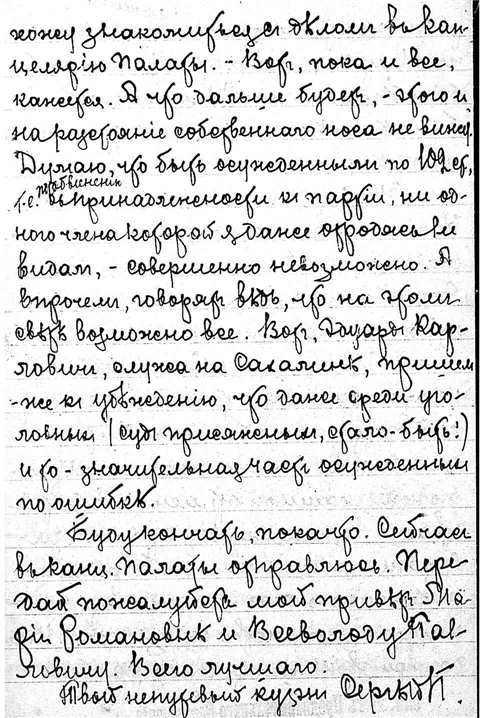 хожу знакомиться съ дѣломъ въ кан-
целярію Палаты. - Вотъ, пока и все,
кажется. А что дальше будетъ, - этого и
на разстояніе собственнаго носа не вижу.
Думаю, что быть осужденнымъ по 102 ст,
по обвиненію
т.е. въ принадлежности къ партіи, ни од-
ного члена которой я даже отродясь не
видалъ, - совершенно невозможно. А
впрочемъ, говорятъ вѣдь, что на этомъ
свѣтѣ возможно все. Вотъ, Эдуардъ Кар-
ловичъ, служа на Сахалинѣ, пришелъ
-же къ убѣжденію, что даже среди уго-
ловныхъ (судъ присяжныхъ, стало-быть!)
и то - значительная часть осужденныхъ
по ошибкѣ.
Буду кончать, пока что. Сейчасъ
въ канц. Палаты отправляюсь. Пере-
дай пожалуйста мой привѣтъ Ма-
ріи Романовнѣ и Всеволоду Пав-
ловичу. Всего лучшаго.
Твой непутевый кузенъ Сергѣй П.